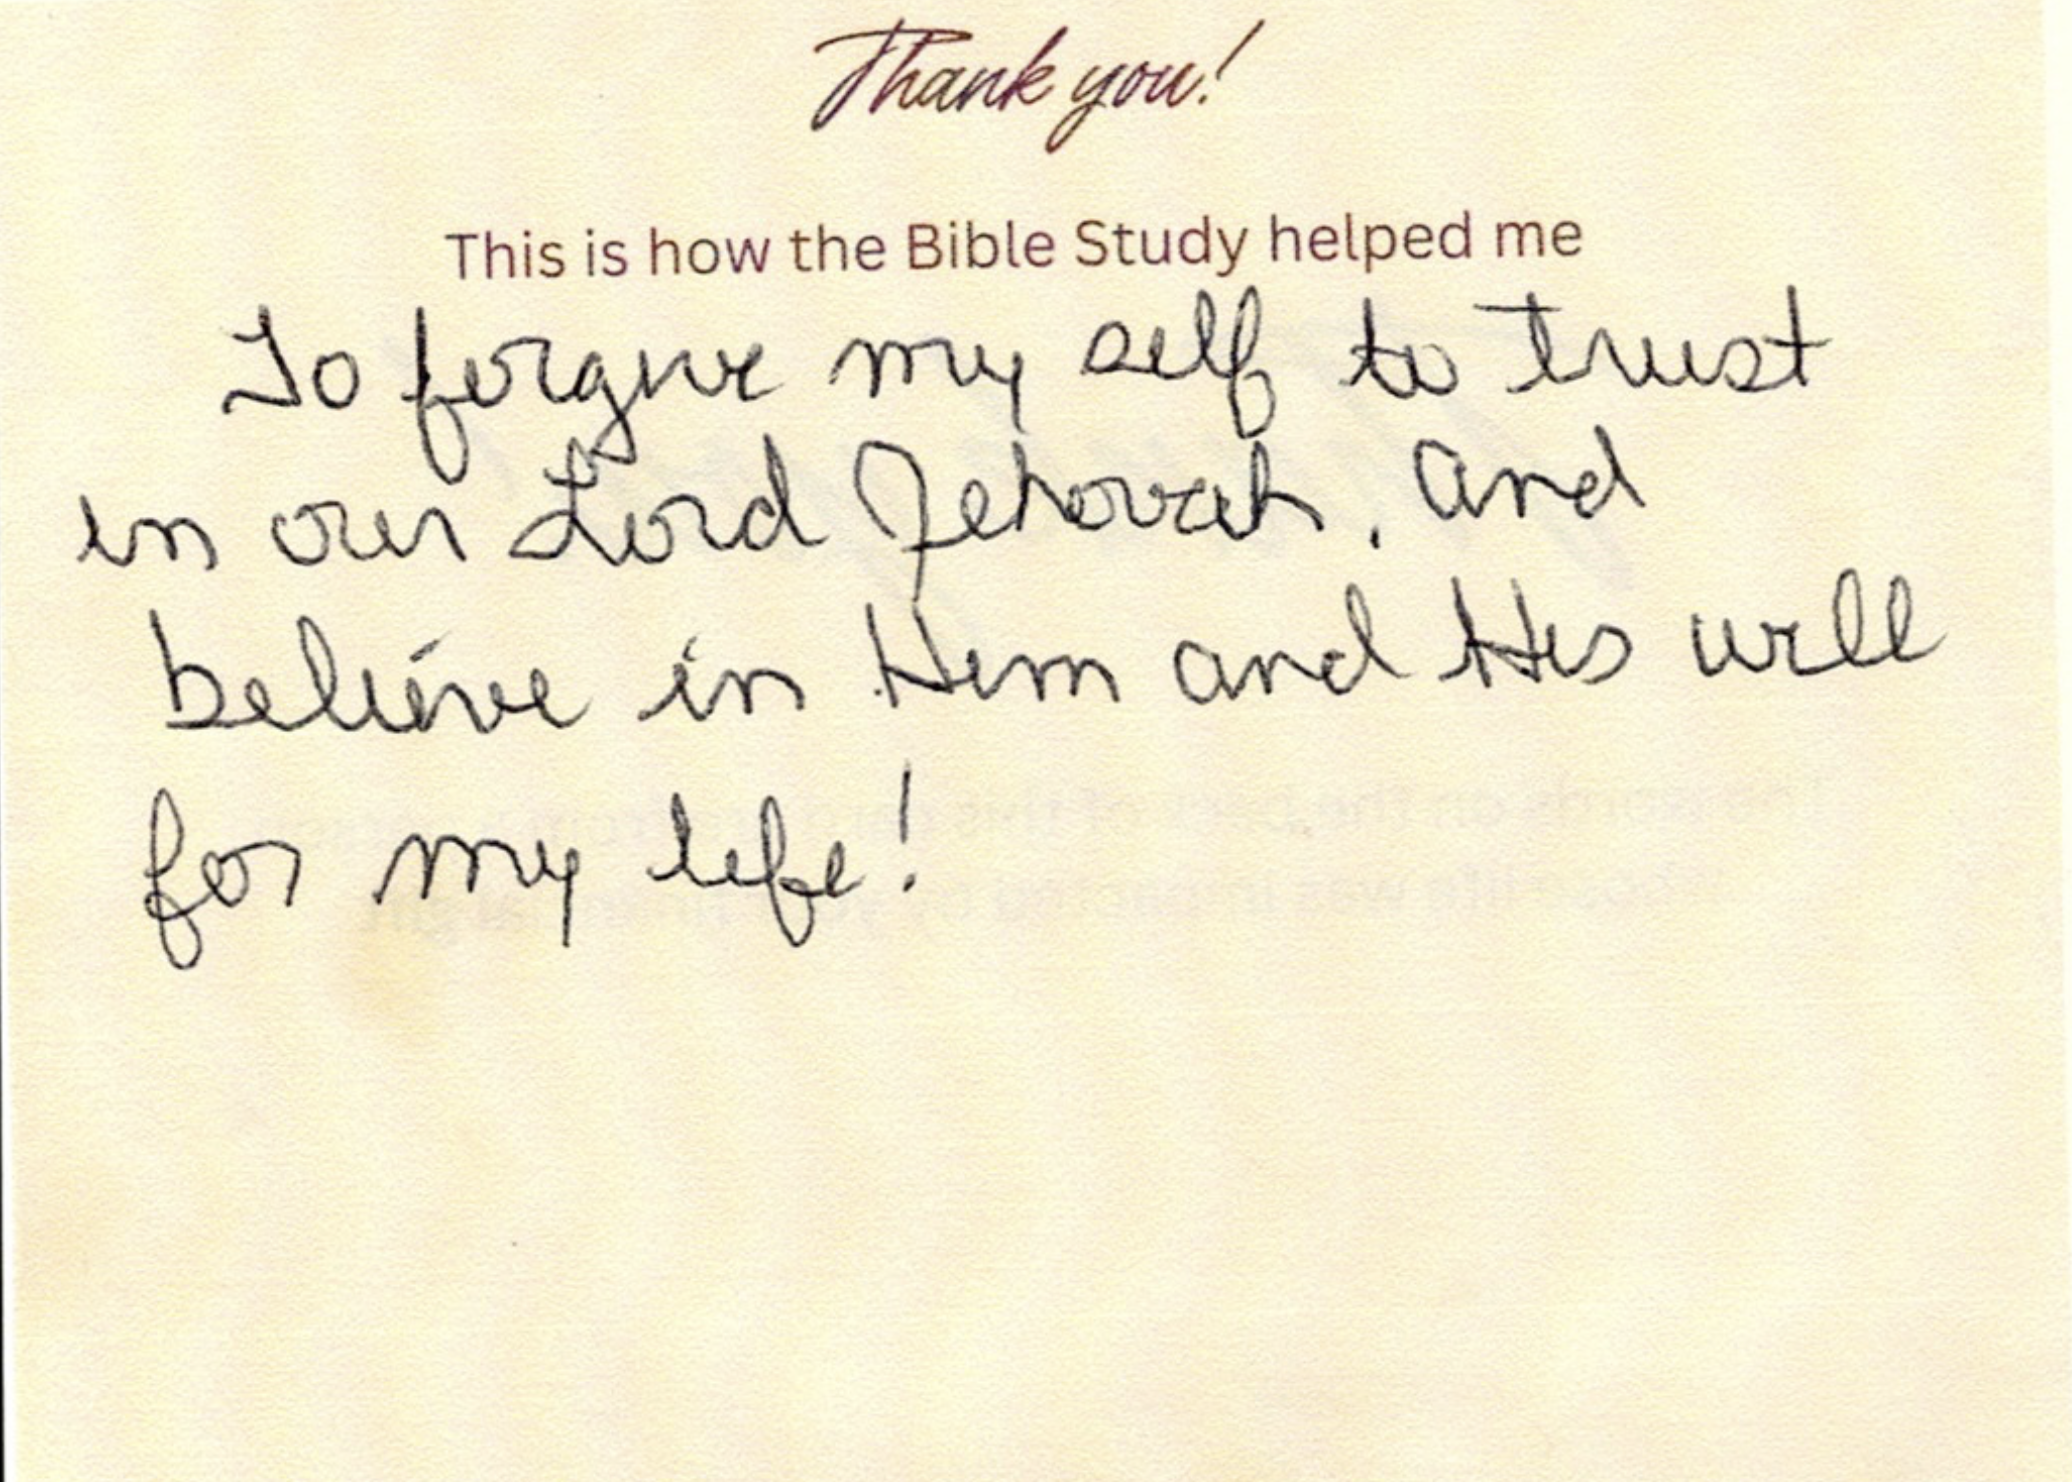 Thank you!
This is how the Bible Study helped me
To forgive my self to trust
in our Lord Jehovah. and
believe in Him and His will
for my life!